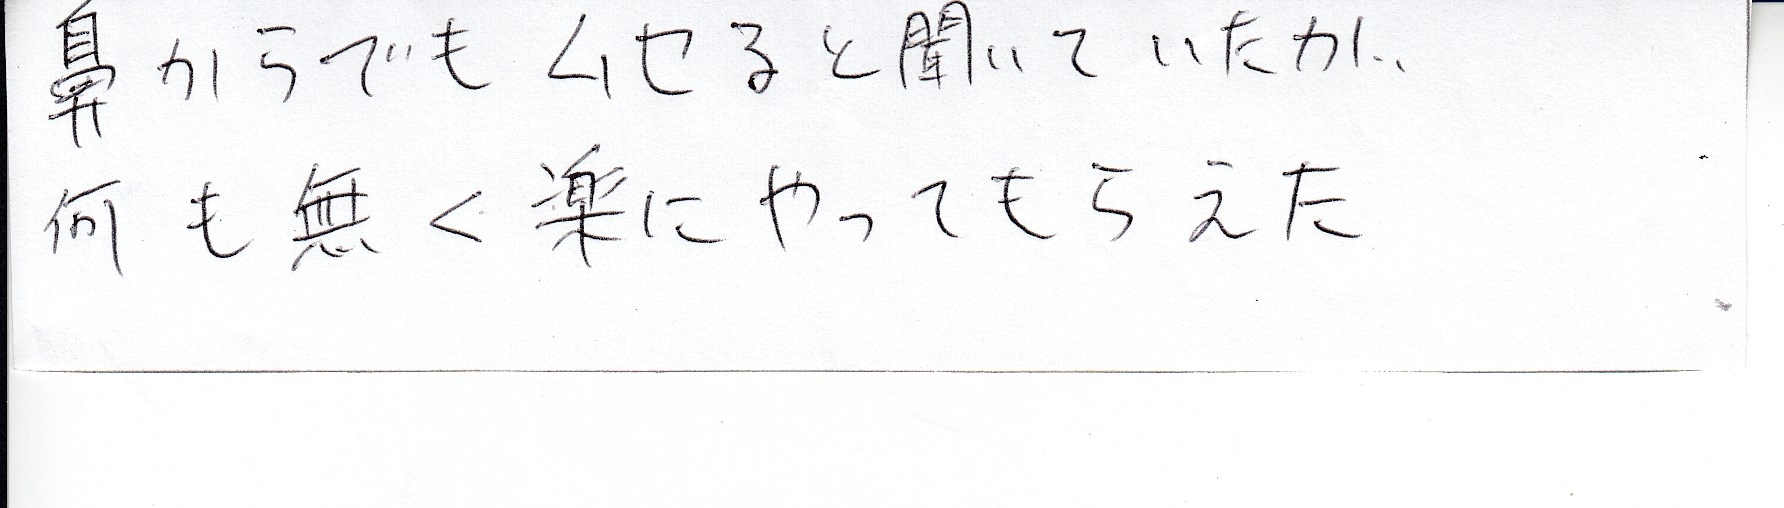 鼻からでもムセると聞いていたが、
何も無く楽にやってもらえた